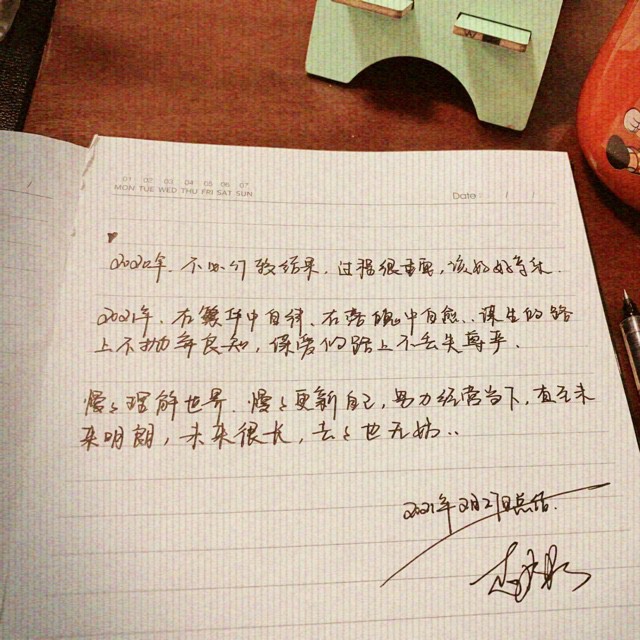 01 02 03 04 05 06 07
MON TUE WED THU FRI SAT SUN
Date / /
2020年、不必计较结果,过程很重要,该好好享受.
2021年、在繁华中自律、在落魄中自愈..谋生的路
上不抛弃良知,谋爱的路上不丢失尊严.
慢慢理解世界、慢慢更新自己,努力经营当下,直至未
来明朗,未来很长,去去也无妨..
2021年2月27日总结.